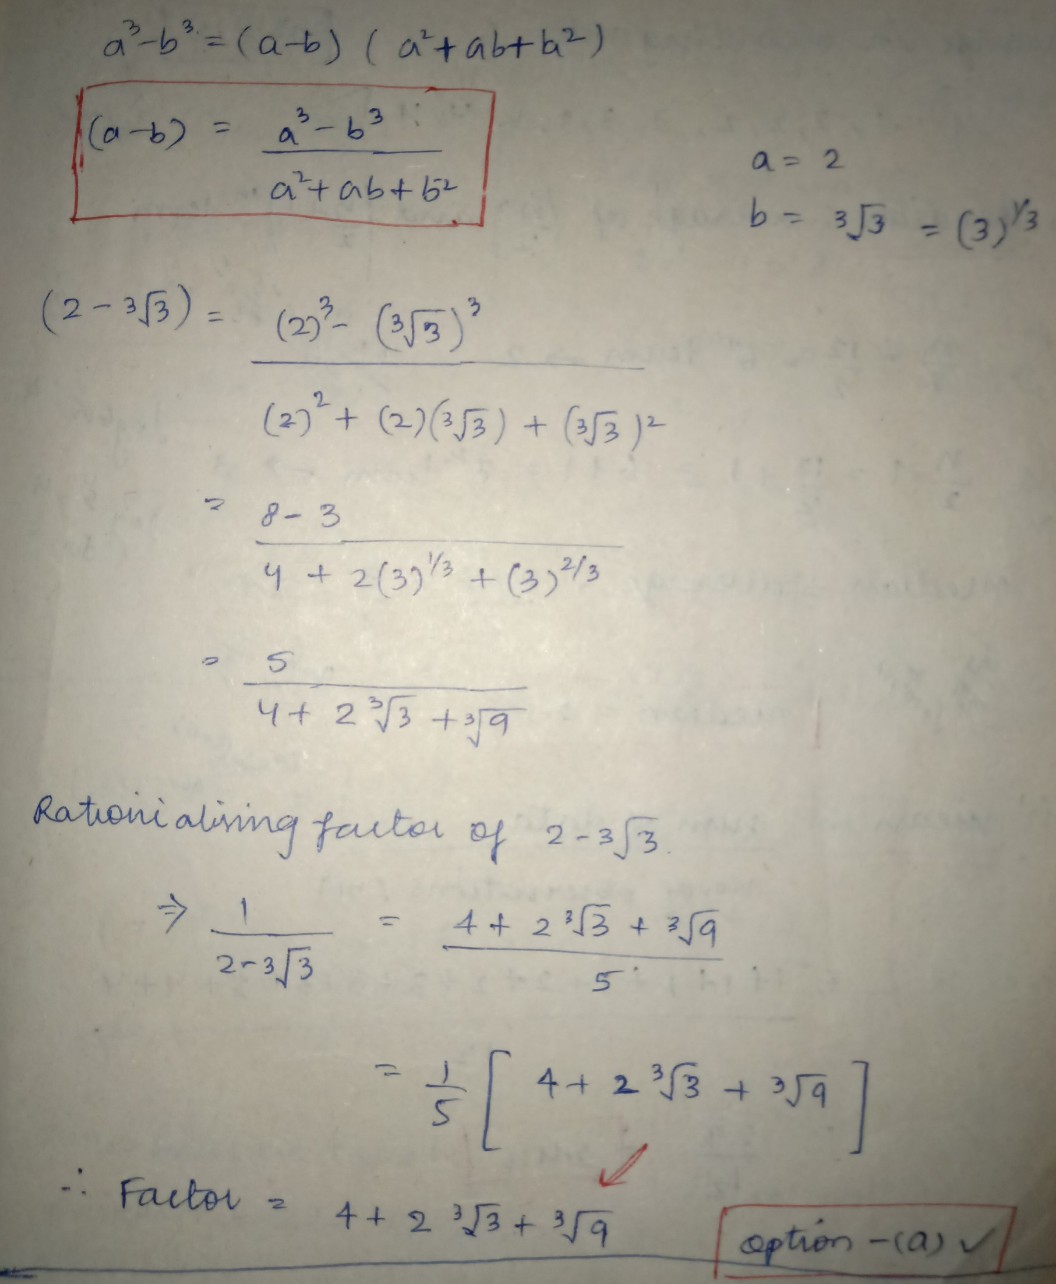 a³-b³ = (a-b) (a²+ab+b²)
(a-b) = (a³-b³)/(a²+ab+b²)
a = 2
b = ³√3 = (3)^1/3
(2-³√3) = ((2)³-(³√3)³)/((2)²+(2)(³√3)+(³√3)²)
= (8-3)/(4+2(3)^1/3+(3)^2/3)
= 5/(4+2³√3+³√9)
Rationialising factor of 2-³√3.
⇒ 1/(2-³√3) = (4+2³√3+³√9)/5
= 1/5 [4+2³√3+³√9]
∴ Factor = 4+2³√3+³√9
option -(a) ✓